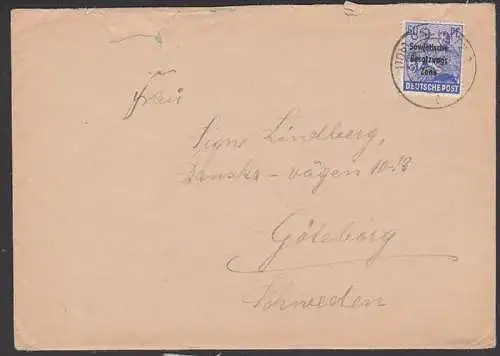 50 Pf
Sowjetische
Besatzungs
Zone
DEUTSCHE POST
Frau
Signe Lindberg,
Danska-vägen 10-18
Göteborg
Schweden